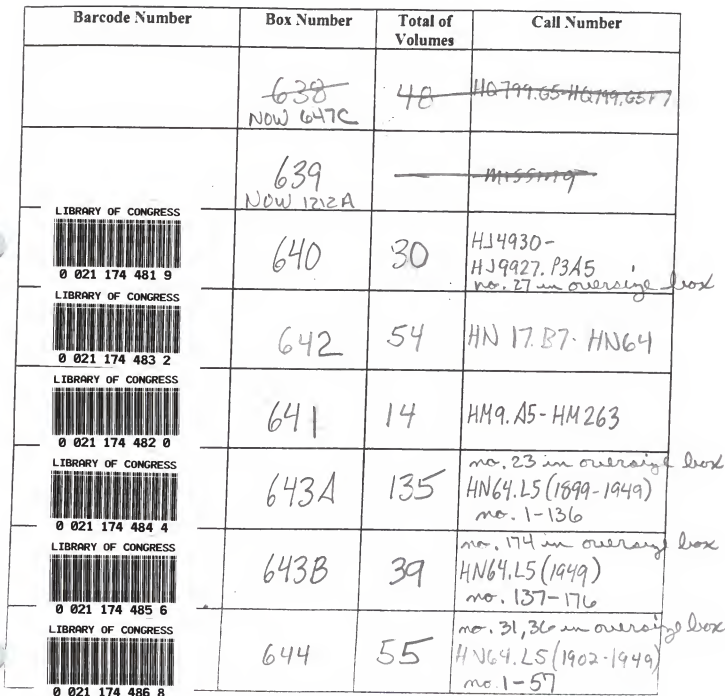 Barcode Number Box Number Total of Volumes Call Number
638 48 HQ799.G5-HQ799.G5F7
NOW 647C
639 missing
NOW 1212A
LIBRARY OF CONGRESS
0 021 174 481 9
640 30 HJ4930-
HJ9927.P3A5
no. 27 in oversize box
LIBRARY OF CONGRESS
0 021 174 483 2
642 54 HN 17.B7- HN64
LIBRARY OF CONGRESS
0 021 174 482 0
641 14 HM9.A5-HM263
LIBRARY OF CONGRESS
0 021 174 484 4
643A 135 no. 23 in oversize box
HN64.L5(1899-1949)
no. 1-136
LIBRARY OF CONGRESS
0 021 174 485 6
643B 39 no. 174 in oversize box
HN64.L5(1949)
no. 137-176
LIBRARY OF CONGRESS
0 021 174 486 8
644 55 no. 31,36 in oversize box
HN64.L5(1902-1949)
no. 1-57